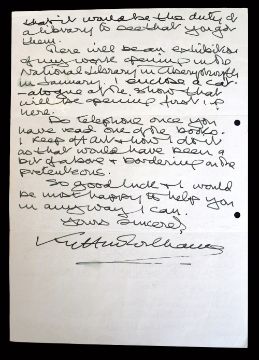 that it would be the duty of
a library to see that you got
them.
There will be an exhibition
of my work opening in the
National Library in Aberystwyth
in January. I enclose a cat-
alogue of the show that
will be opening first up
here.
Do telephone once you
have read one of the books.
I keep off art & how I do it
as that would have been a
bit of a bore & bordering on the
pretentious.
So good luck & I would
be most happy to help you
in any way I can.
Yours sincerely,